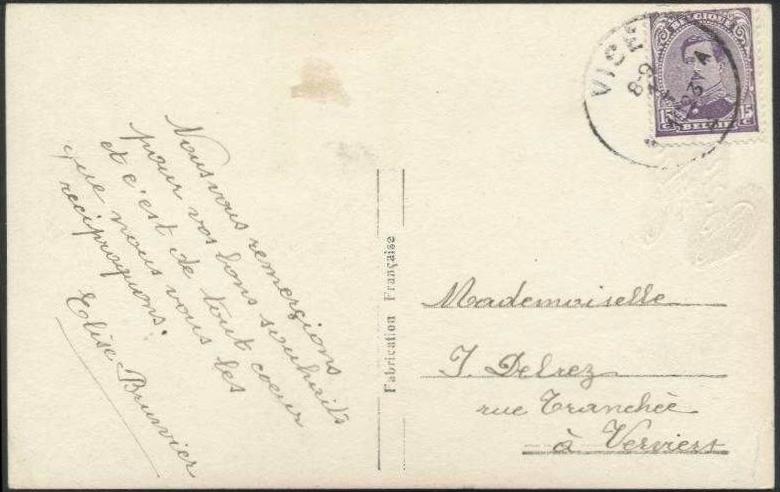 Nous vous remercions
pour vos bons souhaits
et c'est de tout coeur
que nous vous les
reciproquons.
Elise Bruwier
Fabrication Française
BELGIQUE
15 C 15 C
BELGIË
8-9
23
A
Mademoiselle
J. Delrez
rue Tranchée
à Verviers